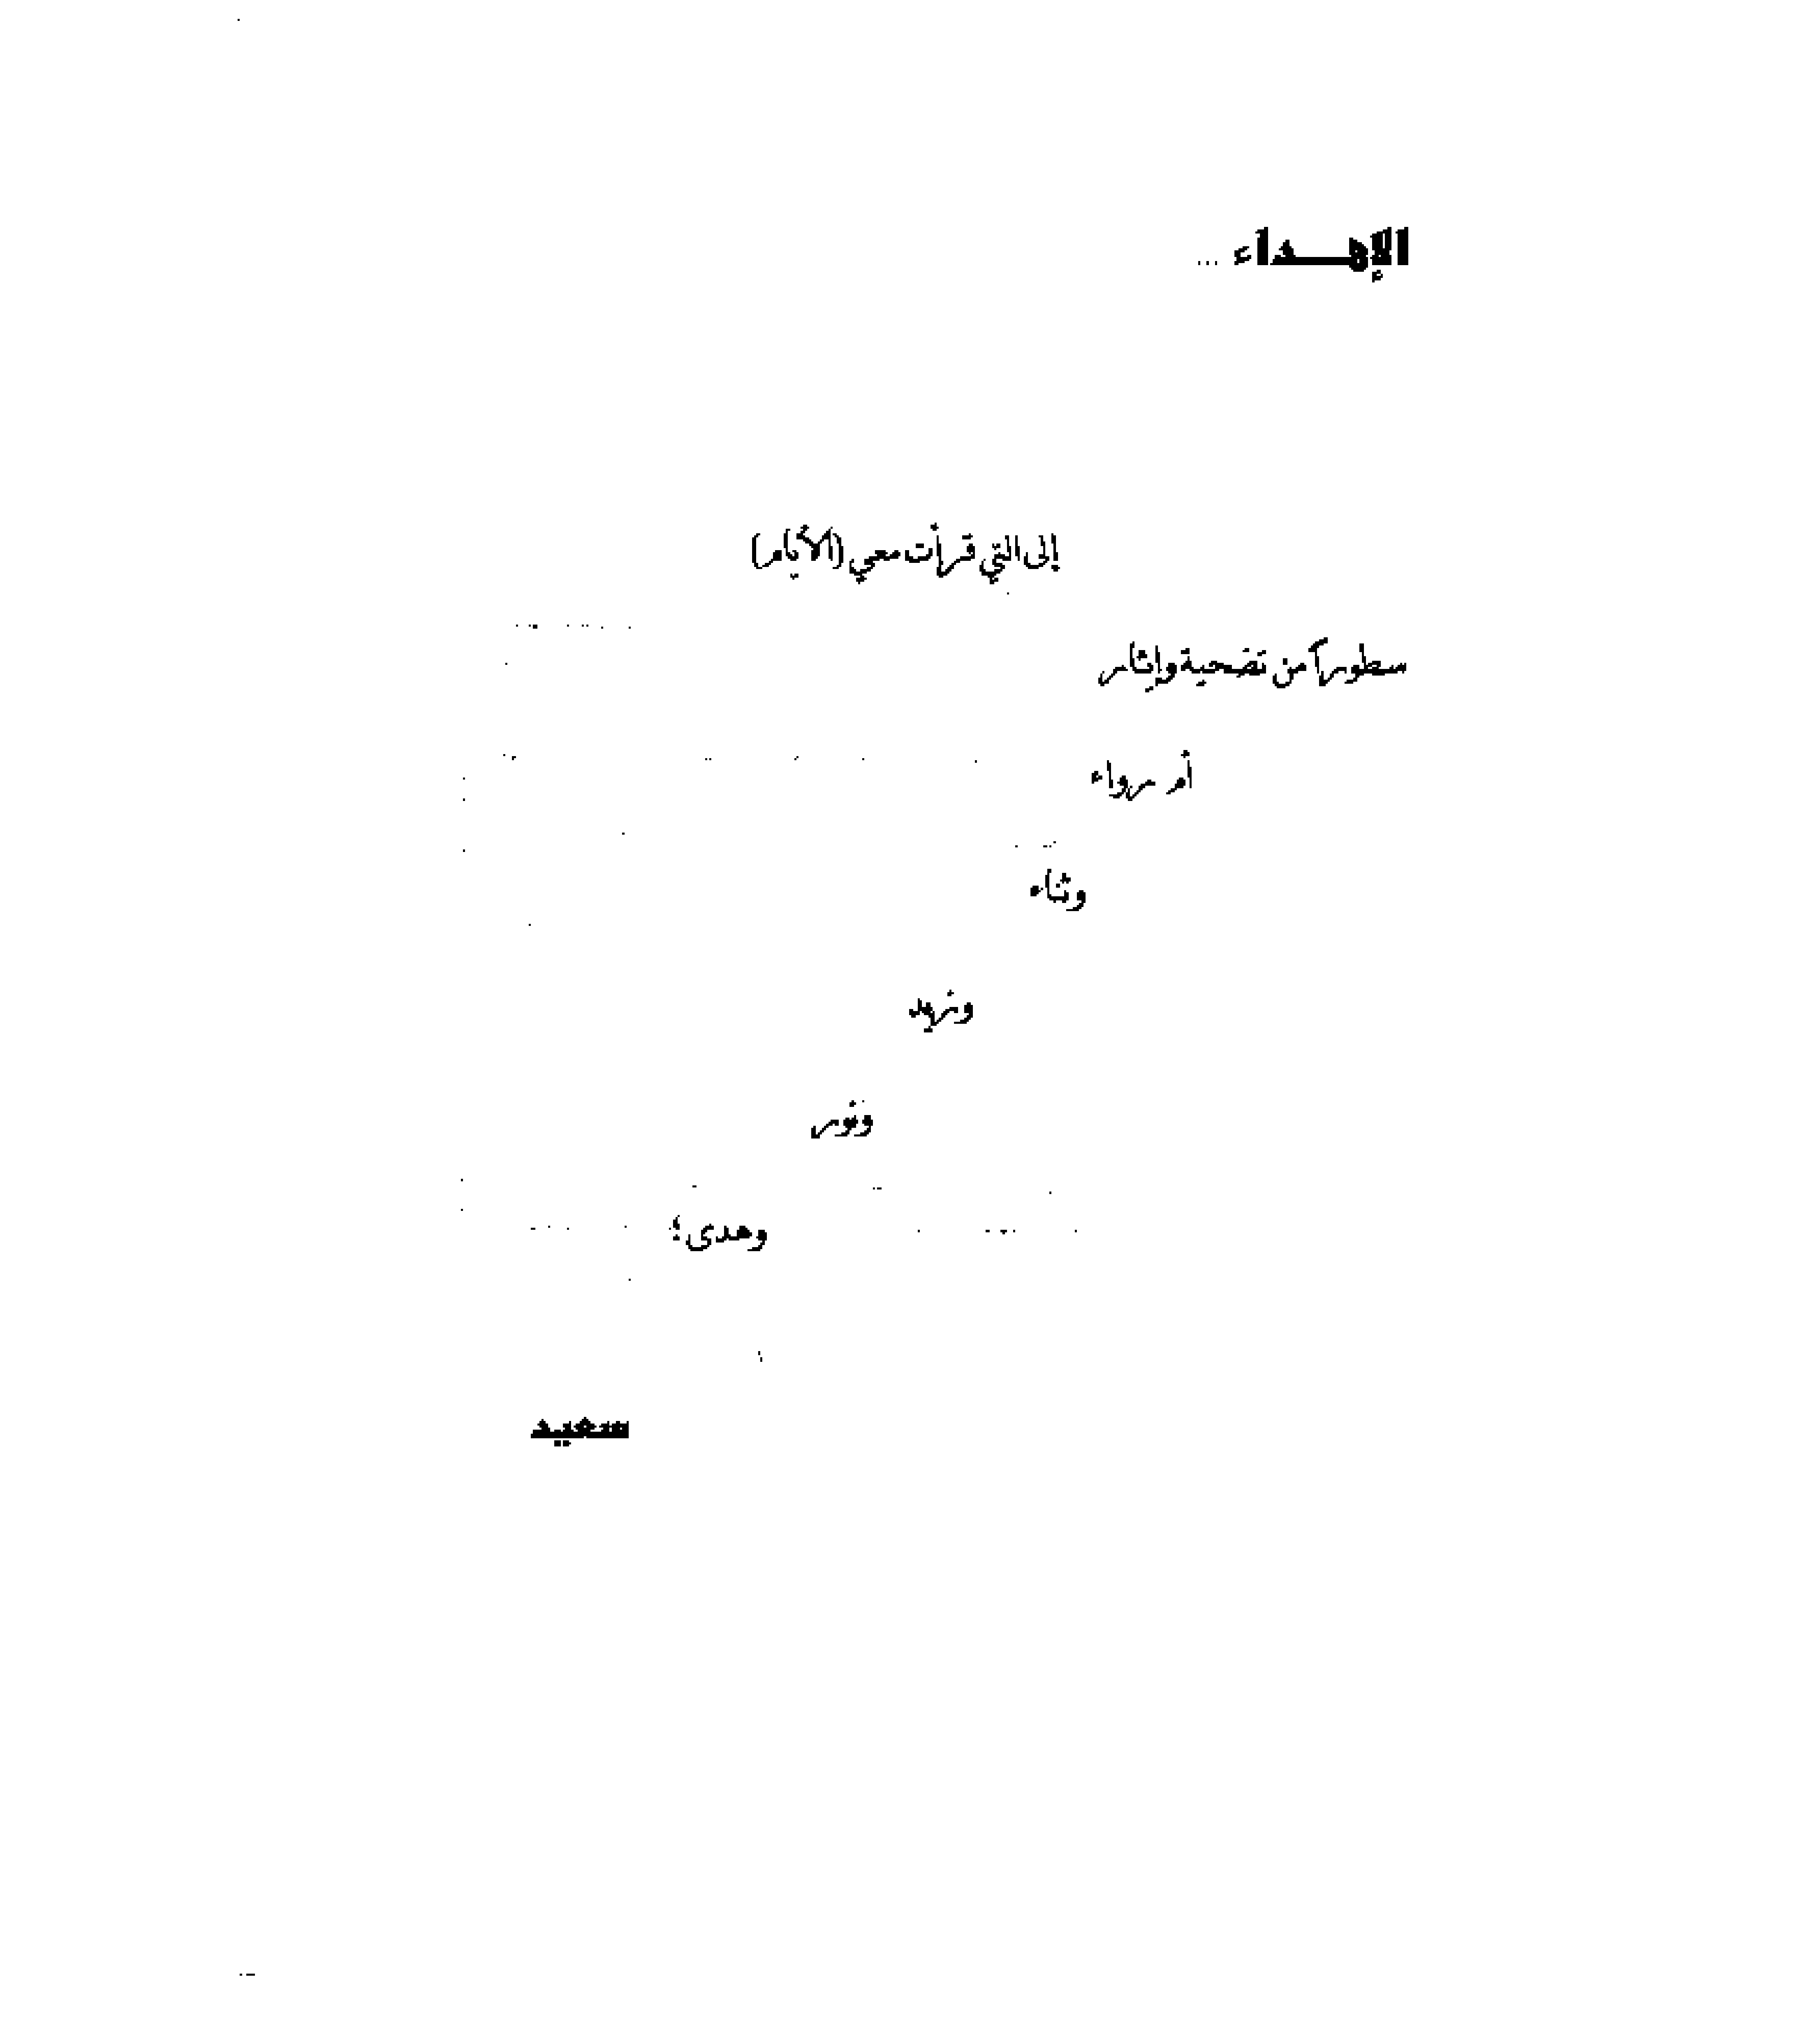 الإهـــداء ...
إلى التي قرأت معي (الأيام)
سطوراً من تضحية وإيثار
أم رواء
وثناء
وزيد
ونور
وهدى؛
سعيد